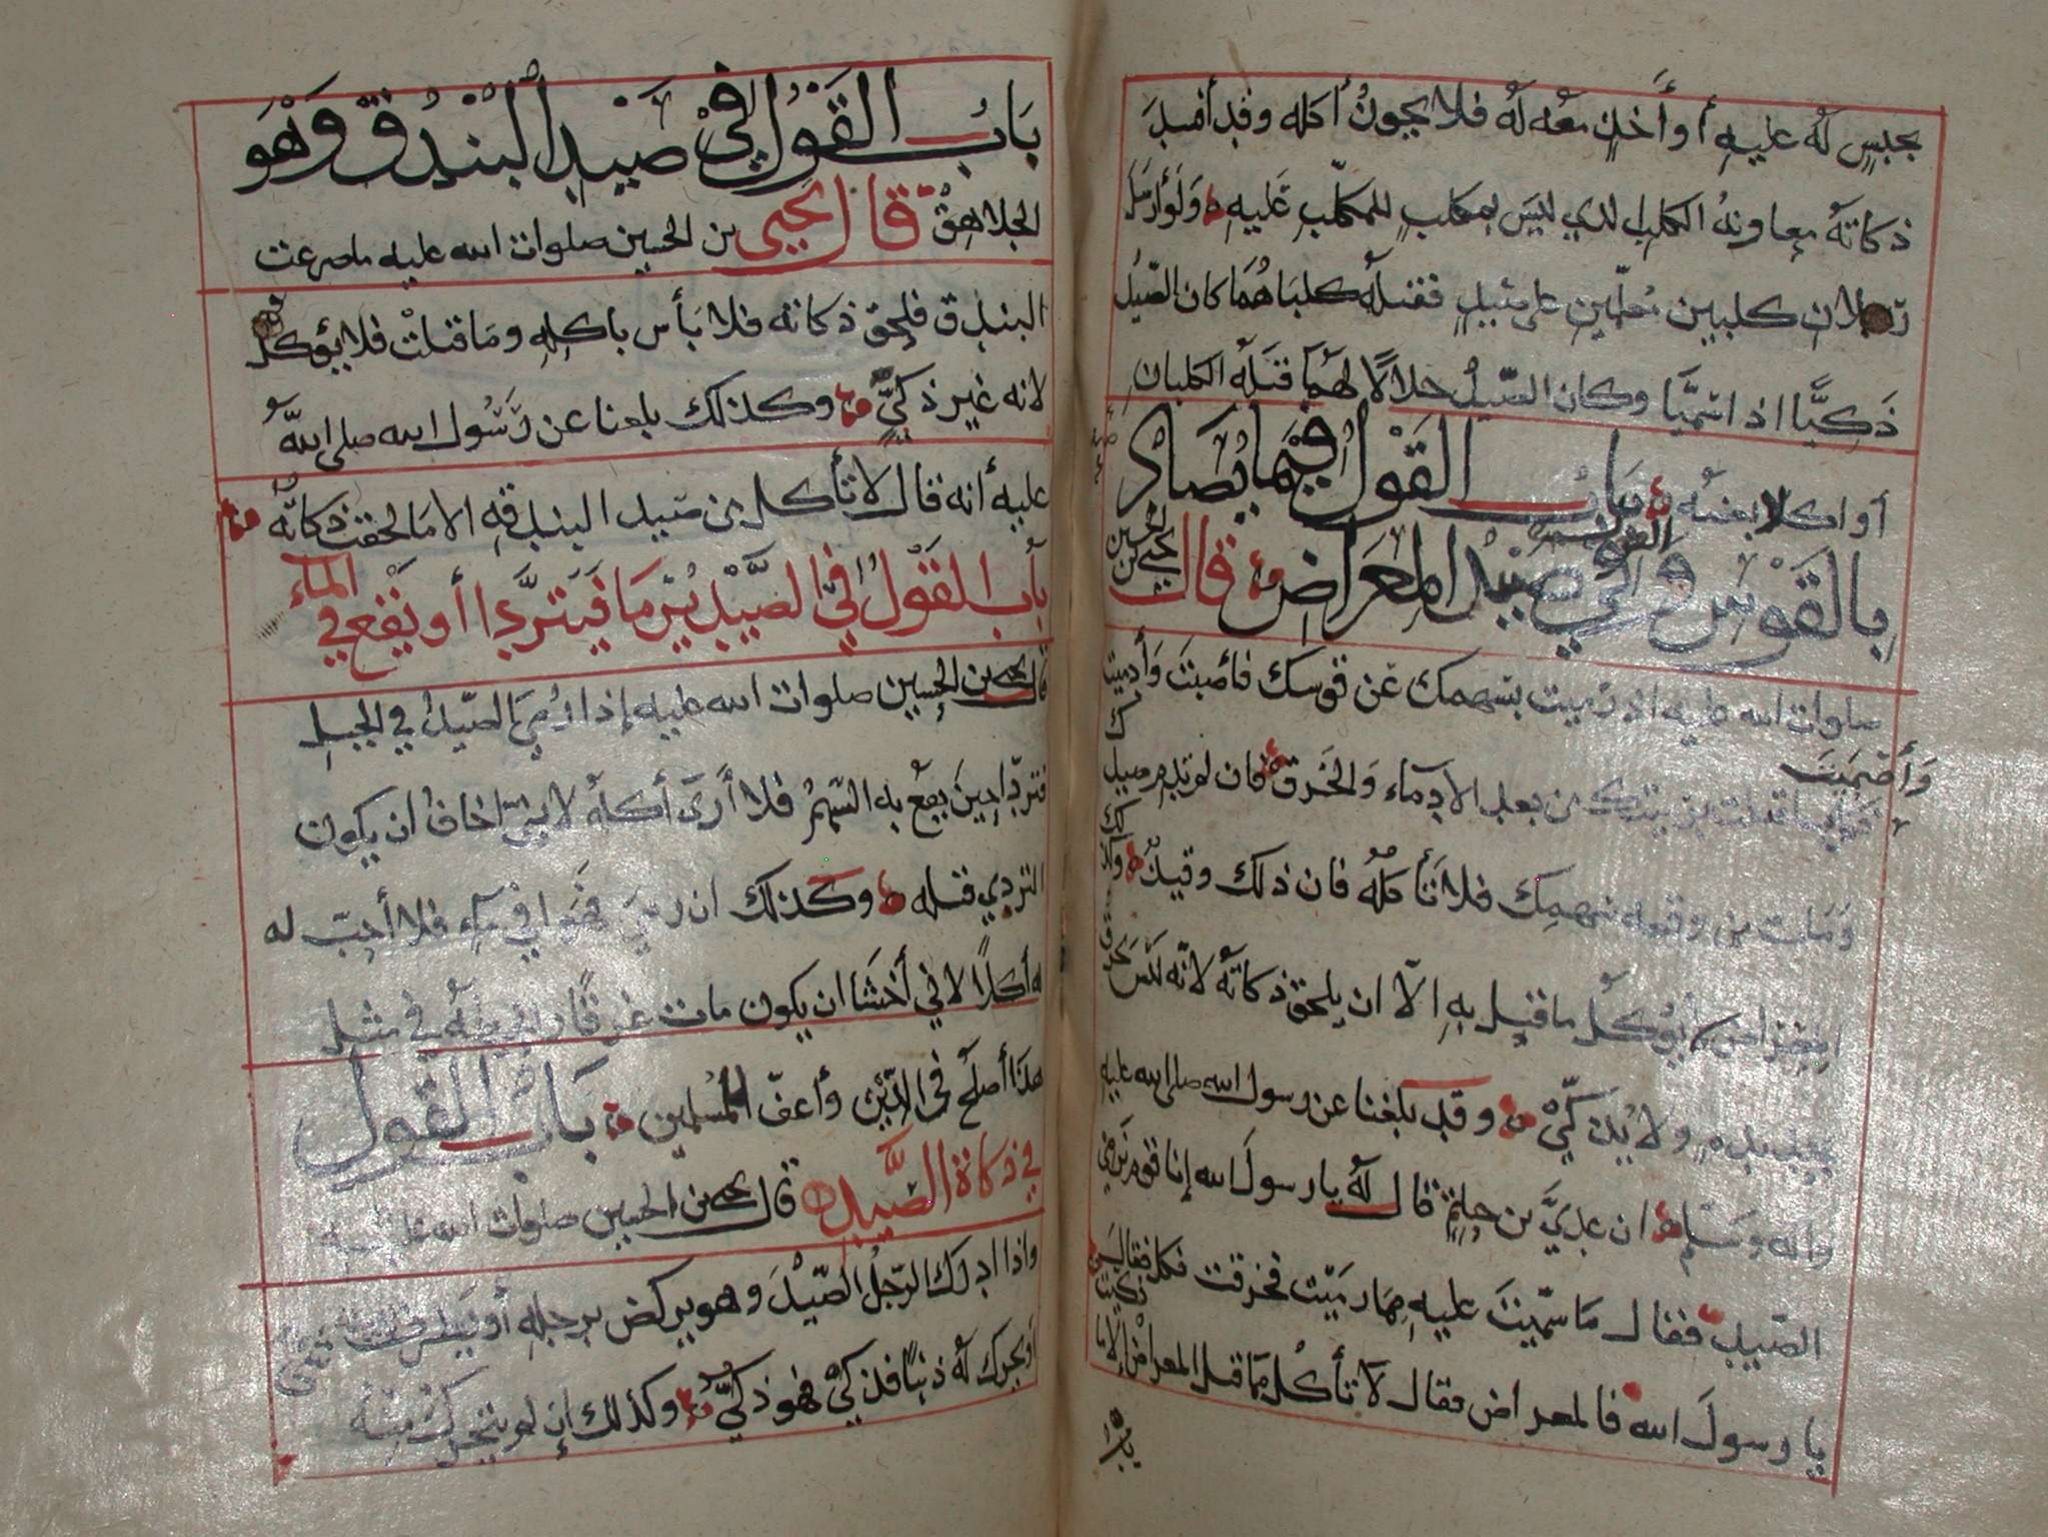 بحبسٍ لَه عليهِ أو أخذٍ معَه لَهُ فلا يجوزُ أكله وقد أفسدَ
ذكاتَهُ معاونهُ الكلب الذي ليسَ بمكلبٍ للمكلّبِ عَليهِ ولَو أرسَلَ
كلبين معلّمين على صَيدٍ فقتلَه كلباهُما كان الصَّيدُ
ذَكِيًّا اذا سَمَّيا وكان الصّيدُ حَلالًا لهُما قتلَهُ الكلبان
أو اكلا بعضَه بَابُ القَوْلِ فِيْمَا يُصَادُ
بِالقَوْسِ وفي صَيْدِ المِعْرَاضِ قال يحيى بن الحسين
صلوات الله عليه اذا رَميتَ بسَهمك عَن قوسك فأصَبتَ وَأدميتَ
وَأصْميتَ
من بعد الادماء وَالخَرق فان لم يَدْمِ صيدك
ومَات من وقعه سَهمِك فلا تأكلهُ فان ذلك وقيذٌ وكذلك
المعراض لا يؤكلُ ما قتِل بهِ الّا ان يلحق ذكاتَهُ لانّه ليسَ يخرق
بحده ولا يُذكّيْ وقد بَلغنا عن رسول الله صلى الله عليه
واله وسَلم ان عديَّ بن حاتمٍ قال لَهُ يا رسولَ الله إنا قوم نَرمي
الصّيد فقال مَا سمّيتَ عليهِ مما رمَيْت فخرقت فكل فقال
يا رسولَ الله فالمعراض فقال لا تأكُل مما قتل المعراض إلا ما ذكيت
بَابُ القَوْلِ فِيْ صَيْدِ البُنْدُقِ وَهُوَ
الجُلاهِقْ قَالَ يَحْيَى بن الحسين صلوات الله عليه ما صرعت
البندق فلحِق ذكاته فلا بَأس باكلِهِ ومَا قتلتْ فلا يؤكل
لانه غير ذكيٍّ وكذلك بلغنا عن رَسُول الله صلى اللهُ
عليهِ أنه قال لا تأكل من صَيد البندقةِ الا مَا لحقت ذكاتَهُ
بَابُ القَوْلِ فِي الصَّيْدِ يُرْمَا فَيَتَرَدَّا أو يَقَع فِي الماء
قال يحيى بن الحسين صلوات الله عليه إذا رُمِيَ الصّيدُ في الجبلِ
فتردّا حِينَ يقعُ به السّهمُ فلا أَرَى أكلَهُ لانِّي اخافُ ان يكون
التردي قتله وكذلك ان رمي فهَوا في ماءٍ فلا أحِبّ له
له أكلًا لاني أخشَا ان يكون مات غرقًا وتركه في مثلِ
هذا أصلَح في الدِّيْنِ وأعفّ للمُسلمين بَابُ القَوْلِ
فِي ذكاة الصَّيد قال يحيى بن الحسين صلوات الله عليه
واذا ادرك الرّجلُ الصّيدَ وهو يركض برجلِهِ أو يَطرفُ بعينه
أو يحرك لَه ذنبًا فذكيَ فهو ذكيٌّ وكذلك إن لم يتحرك منهُ شيء